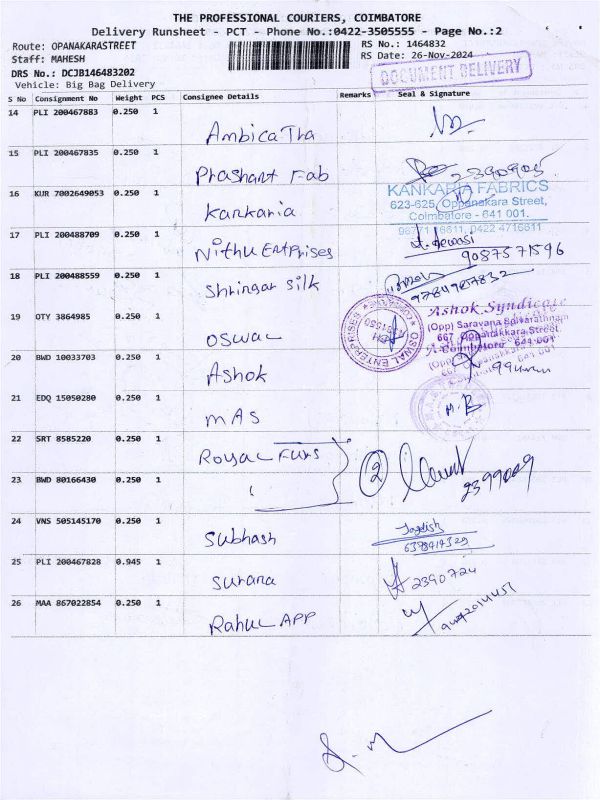 THE PROFESSIONAL COURIERS, COIMBATORE
Delivery Runsheet - PCT - Phone No.:0422-3505555 - Page No.:2
Route: OPANAKARASTREET
RS No.: 1464832
Staff: MAHESH
RS Date: 26-Nov-2024
DRS No.: DCJB146483202
DOCUMENT DELIVERY
Vehicle: Big Bag Delivery
S No Consignment No Weight PCS Consignee Details Remarks Seal & Signature
14 PLI 200467883 0.250 1 Ambica Tha
15 PLI 200467835 0.250 1 Prashant Fab 2390905
16 KUR 7002649053 0.250 1 Kankaria
KANKARIA FABRICS
623-625, Oppanakara Street,
Coimbatore - 641 001.
0422 4716611
17 PLI 200488709 0.250 1 Nithu Entprises
9087571596
18 PLI 200488559 0.250 1 Shringar Silk
19 OTY 3864985 0.250 1 Oswal
OSWAL ENTERPRISES
Ashok Syndicate
(Opp) Saravana Selvarathnam
667 Oppanakkara Street,
Coimbatore 641 001
20 BWD 10033703 0.250 1 Ashok
21 EDQ 15050280 0.250 1 MAS M.B
22 SRT 8585220 0.250 1 Royal Furs 2
2399009
23 BWD 80166430 0.250 1
24 VNS 505145170 0.250 1 Subhash
25 PLI 200467828 0.945 1 Surana 2390724
26 MAA 867022854 0.250 1 Rahul APP